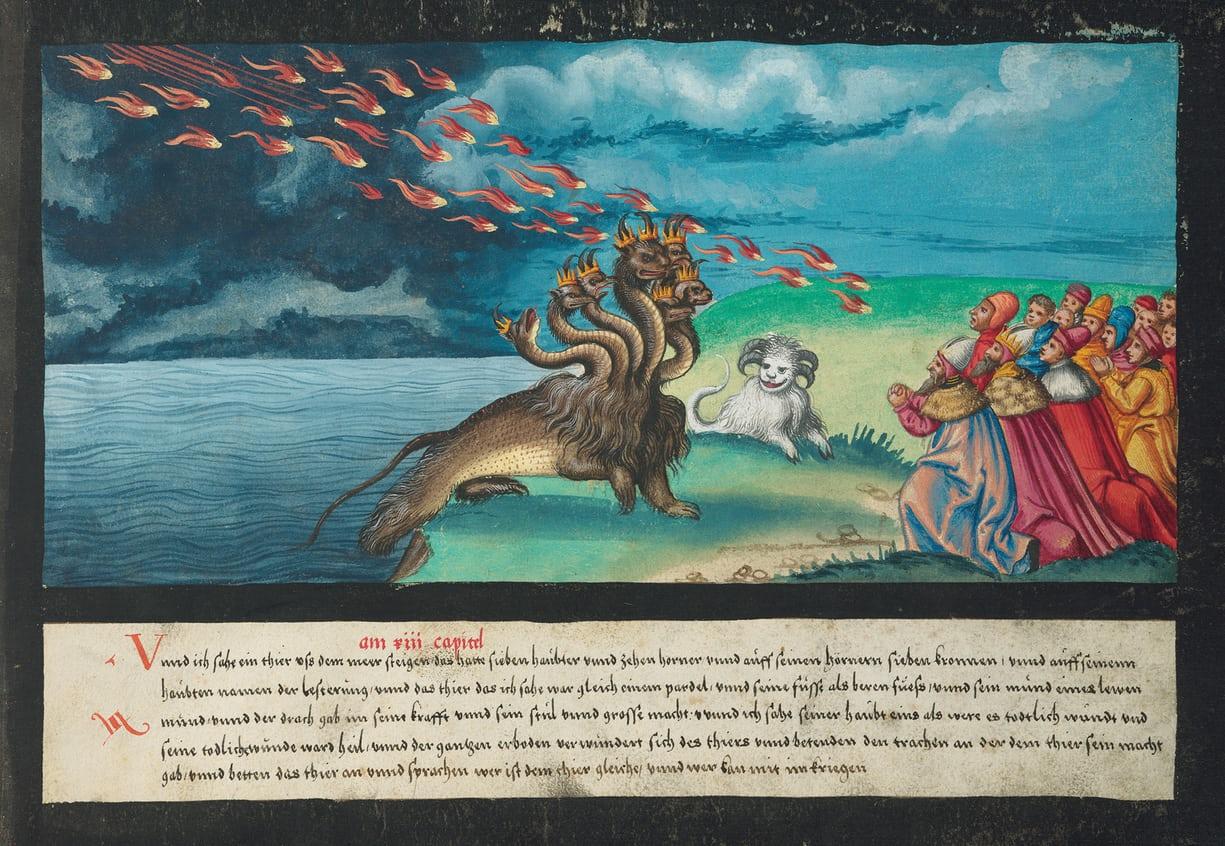 am xiii capitel
Vnnd ich sahe ein thier vß dem meer steigen das hatte sieben haübter vnnd zehen hörner vnnd aüff seinen hörnern sieben kronnen / vnnd aüff seinenn
haübten namen der lesterüng / vnnd das thier das ich sahe war gleich einem pardel / vnnd seine füsse als beren füeß / vnnd sein münd eines lewen
münd / vnnd der drach gab im seine krafft vnnd sein stül vnnd grosse macht / vnnd ich sahe seiner haübt eins als were es todtlich wündt vnd
seine todlich wünde ward heil / vnnd der gantzen erboden verwündert sich des thiers vnnd betenden den trachen an der dem thier sein macht
gab / vnnd betten das thier an vnnd sprachen wer ist dem thier gleiche / vnnd wer kan mit im kriegen